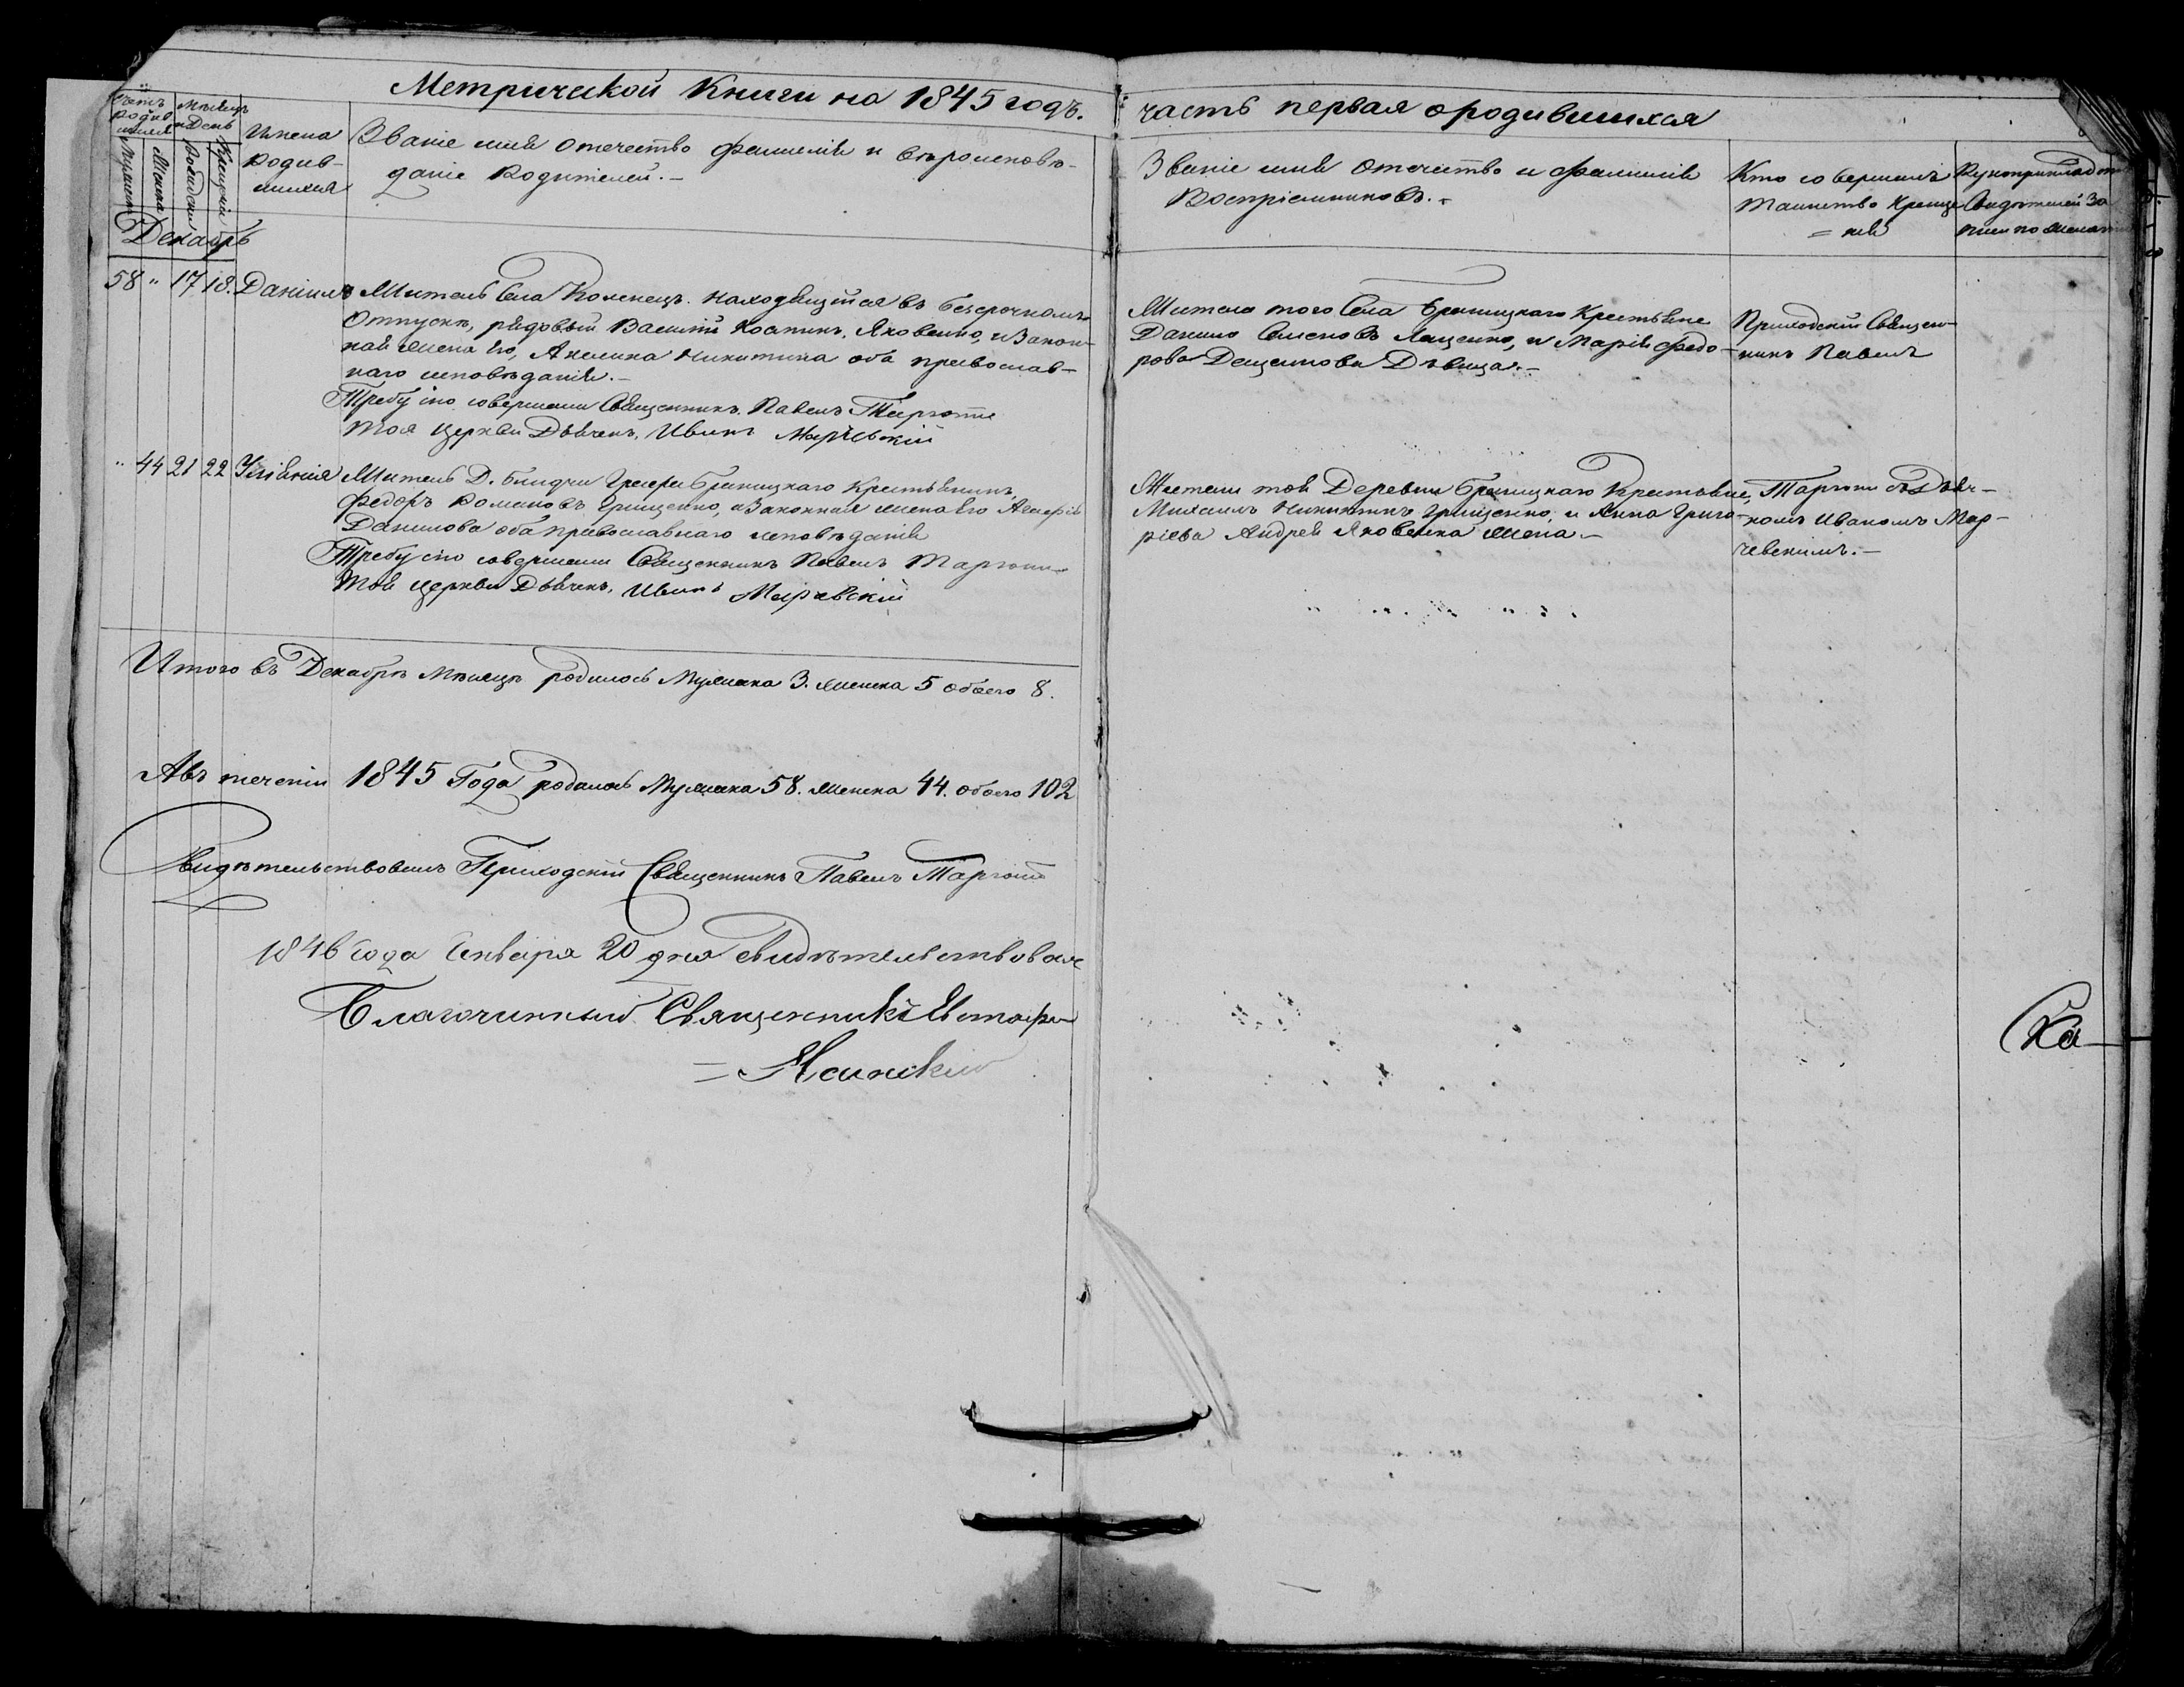 Метрической Книги на 1845 годъ.
часть первая о родившихся
Счетъ родив шихся
Мѣсяцъ и День
Мужеска
Женска
Рожденія
Крещенія
Имена
родив-
шихся
Званіе имя отечество фамилія и вѣроисповѣ-
даніе Родителей.-
Званіе имя Отечество и фамилія
Воспріемниковъ.-
Кто совершалъ
Таинство Креще
=нія
Рукоприкладство
Свидѣтелей за
писи по желанію
Декабрь
58 " 17 18. Даніилъ
Житель Села Коженецъ. находящійся въ безсрочномъ
Отпуску, рядовый Василій Яковенко, и Закон-
ная жена Его, Акилина Никитина оба православ-
наго исповѣданія.-
Требу сію совершали Священникъ Павелъ
тоя церкви Дьячекъ, Иванъ
Жители того Села Браницкаго Крестьяне
Данило Семеновъ Лященко, и Марія Ѳедо-
рова Дѣвица.-
Приходскій Священ-
никъ Павелъ
" 44 21 22 Уліянія
Житель Д. Графа Браницкаго Крестьянинъ,
Федоръ Романовъ Грищенко, и Законная жена его
Данилова оба православнаго исповѣданія
Требу сію совершали Священникъ Павелъ
той церкви Дьячекъ, Иванъ
Жители той Деревни Браницкаго Крестьяне,
Михаилъ Никитинъ Грищенко, и Анна Григо-
ріева Андрея Яковенка жена.-
съ Дьяч-
комъ Иваномъ Мар-
чевскимъ.-
Итого въ Декабрѣ Мѣсяцѣ родилось Мужеска 3. женска 5 обоего 8.
А въ теченіи 1845 Года родилось Мужеска 58. женска 44. обоего 102
Свидѣтельствовалъ Приходскій Священникъ Павелъ
1846 года Января 20 дня свидѣтельствовалъ
Благочинный Священникъ
Ка